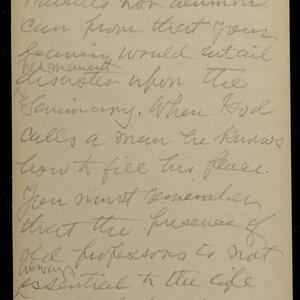 nor alumni
can prove that your
leaving would entail
permanent
disaster upon the
Seminary. When God
calls a man he knows
how to fill his place.
You must remember
that the presence of
old professors is not
always
essential to the life